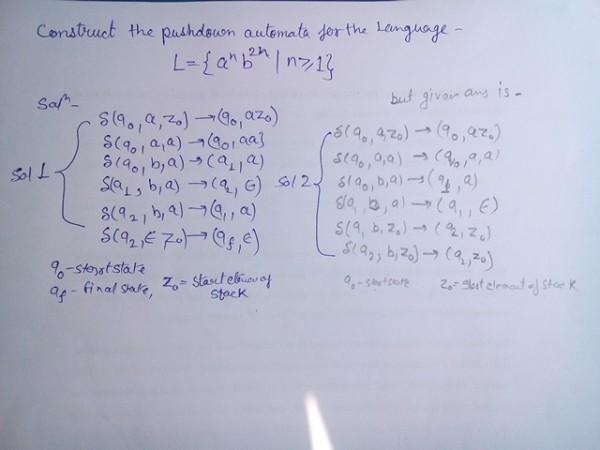 Construct the pushdown automata for the Language -
L = { aⁿ b²ⁿ | n ≥ 1 }
Solⁿ-
Sol 1
δ(q₀, a, z₀) → (q₀, az₀)
δ(q₀, a, a) → (q₀, aa)
δ(q₀, b, a) → (q₁, a)
δ(q₁, b, a) → (q₂, ϵ)
δ(q₂, b, a) → (q₁, a)
δ(q₂, ϵ z₀) → (qf, ϵ)
q₀ - start state
qf - final state, z₀ = start element of stack
but given ans is -
Sol 2
δ(q₀, a, z₀) → (q₀, az₀)
δ(q₀, a, a) → (q₀, a, a)
δ(q₀, b, a) → (q₁, a)
δ(q₁, b, a) → (q₁, ϵ)
δ(q₁ b, z₀) → (q₂, z₀)
δ(q₂, b, z₀) → (q₂, z₀)
q₀ - start state z₀ = start element of stack